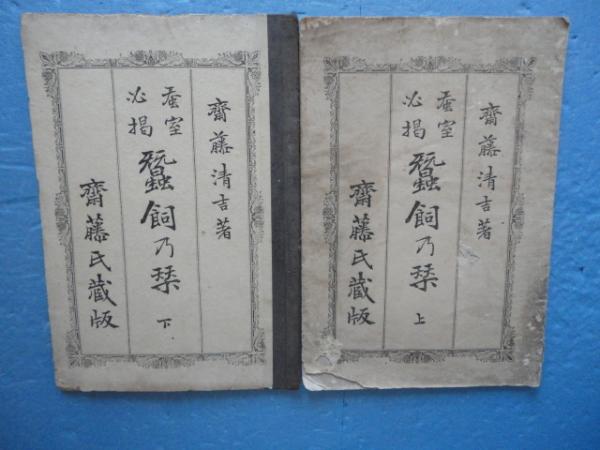 齋藤清吉著
蚕室
必携
蠶飼乃栞
上
齋藤氏藏版
齋藤清吉著
蚕室
必携
蠶飼乃栞
下
齋藤氏藏版